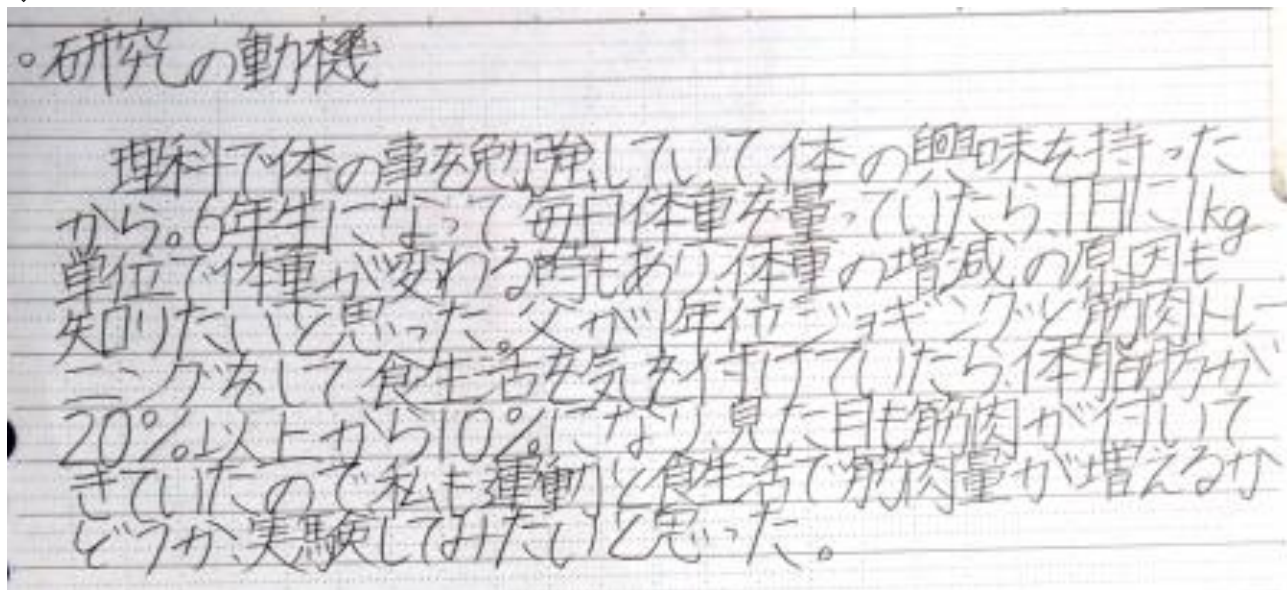 。研究の動機
理科で体の事を勉強していて、体の興味を持った
から。6年生になって、毎日体重を量っていたら、1日に1kg
単位で体重が変わる時もあり、体重の増減の原因も
知りたいと思った。父が1年位ジョギングと筋肉トレー
ニングをして、食生活を気を付けていたら、体脂肪が
20%以上から10%になり、見た目も筋肉が付いて
きていたので私も運動と食生活で筋肉量が増えるか
どうか、実験してみたいと思った。